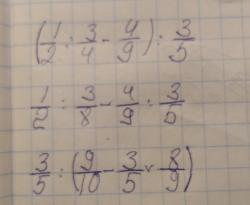 (1/2 : 3/4 - 4/9) : 3/5
1/2 : 3/8 - 4/9 : 3/5
3/5 : (9/10 - 3/5 × 8/9)